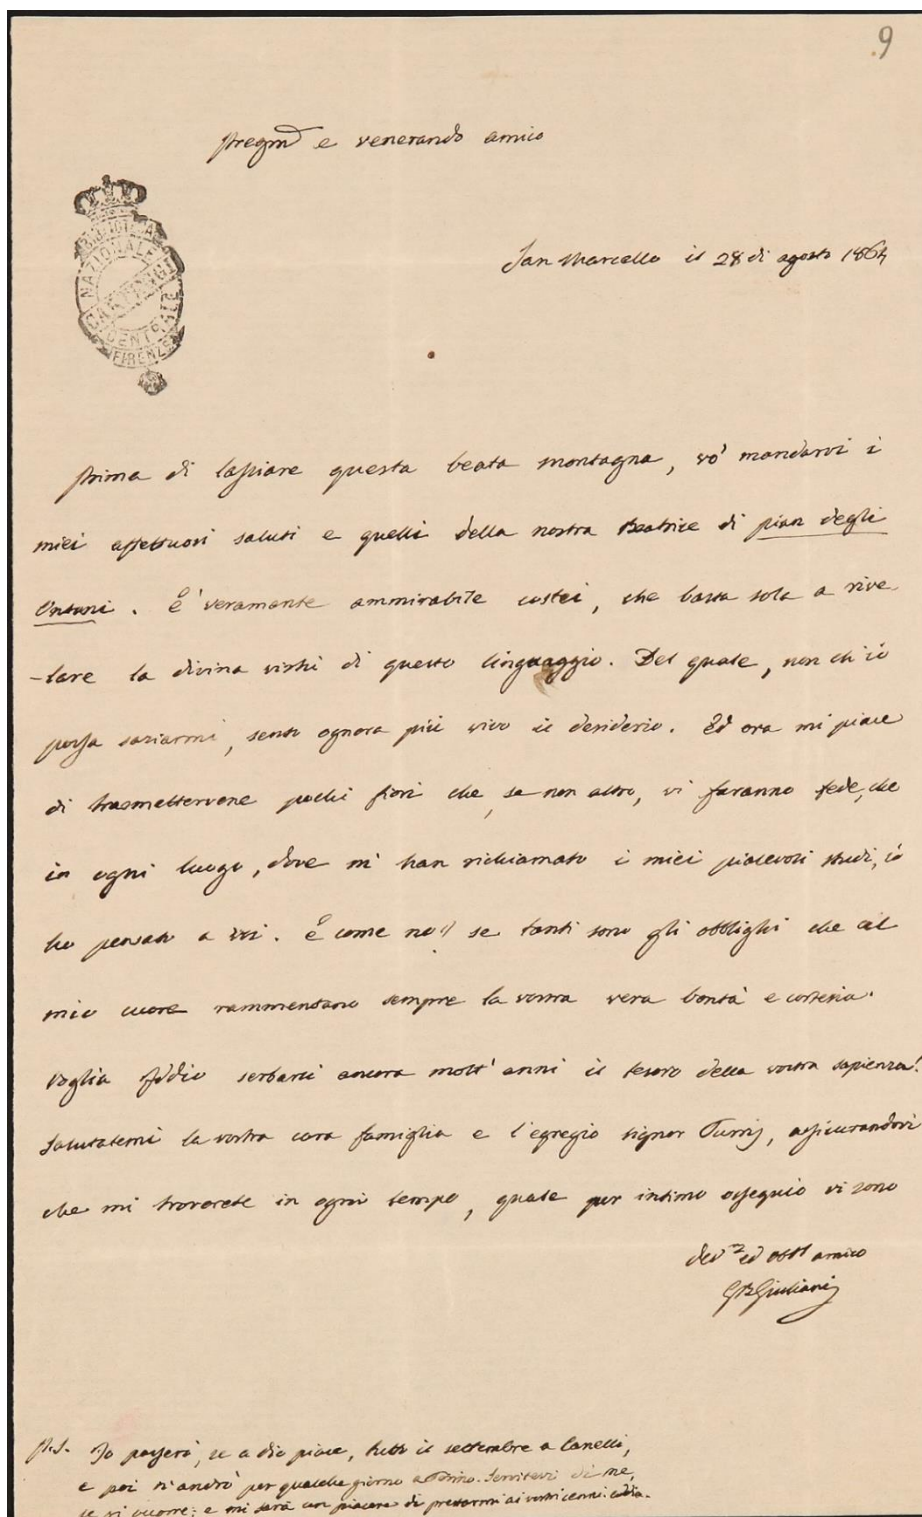 9
Pregmo e venerando amico
BIBLIOTECA
NAZIONALE
CENTRALE
FIRENZE
San Marcello il 28 di agosto 1864
Prima di lasciare questa beata montagna, vo' mandarvi i
miei affettuosi saluti e quelli della nostra Beatrice di pian degli
Ontani. È veramente ammirabile costei, che basta sola a rive-
-lare la divina virtù di questo linguaggio. Del quale, non ch'io
possa saziarmi, sento ognora più vivo il desiderio. Ed ora mi piace
di trasmettervene pochi fiori che, se non altro, vi faranno fede, che
in ogni luogo, dove m'han richiamato i miei piacevoli studi, io
ho pensato a voi. E come no!! se tanti sono gli obblighi che al
mio cuore rammentano sempre la vostra vera bontà e cortesia.
Voglia Iddio serbarci ancora molt'anni il tesoro della vostra sapienza!
Salutatemi la vostra cara famiglia e l'egregio signor Turrij, assicurandovi
che mi troverete in ogni tempo, quale per intimo ossequio vi sono
devmo ed obbl amico
GBGiulianij
P.S. Io passerò, se a Dio piace, tutto il settembre a Canelli,
e poi n'andrò per qualche giorno a Torino. Servitevi di me,
se vi occorre: e mi sarà un piacere di prestarmi ai vostri cenni.